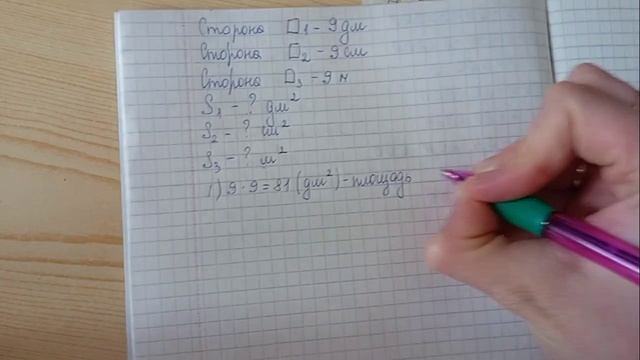 Сторона □1 - 9 дм
Сторона □2 - 9 см
Сторона □3 - 9 м
S1 - ? дм²
S2 - ? см²
S3 - ? м²
1) 9 · 9 = 81 (дм²) - площадь